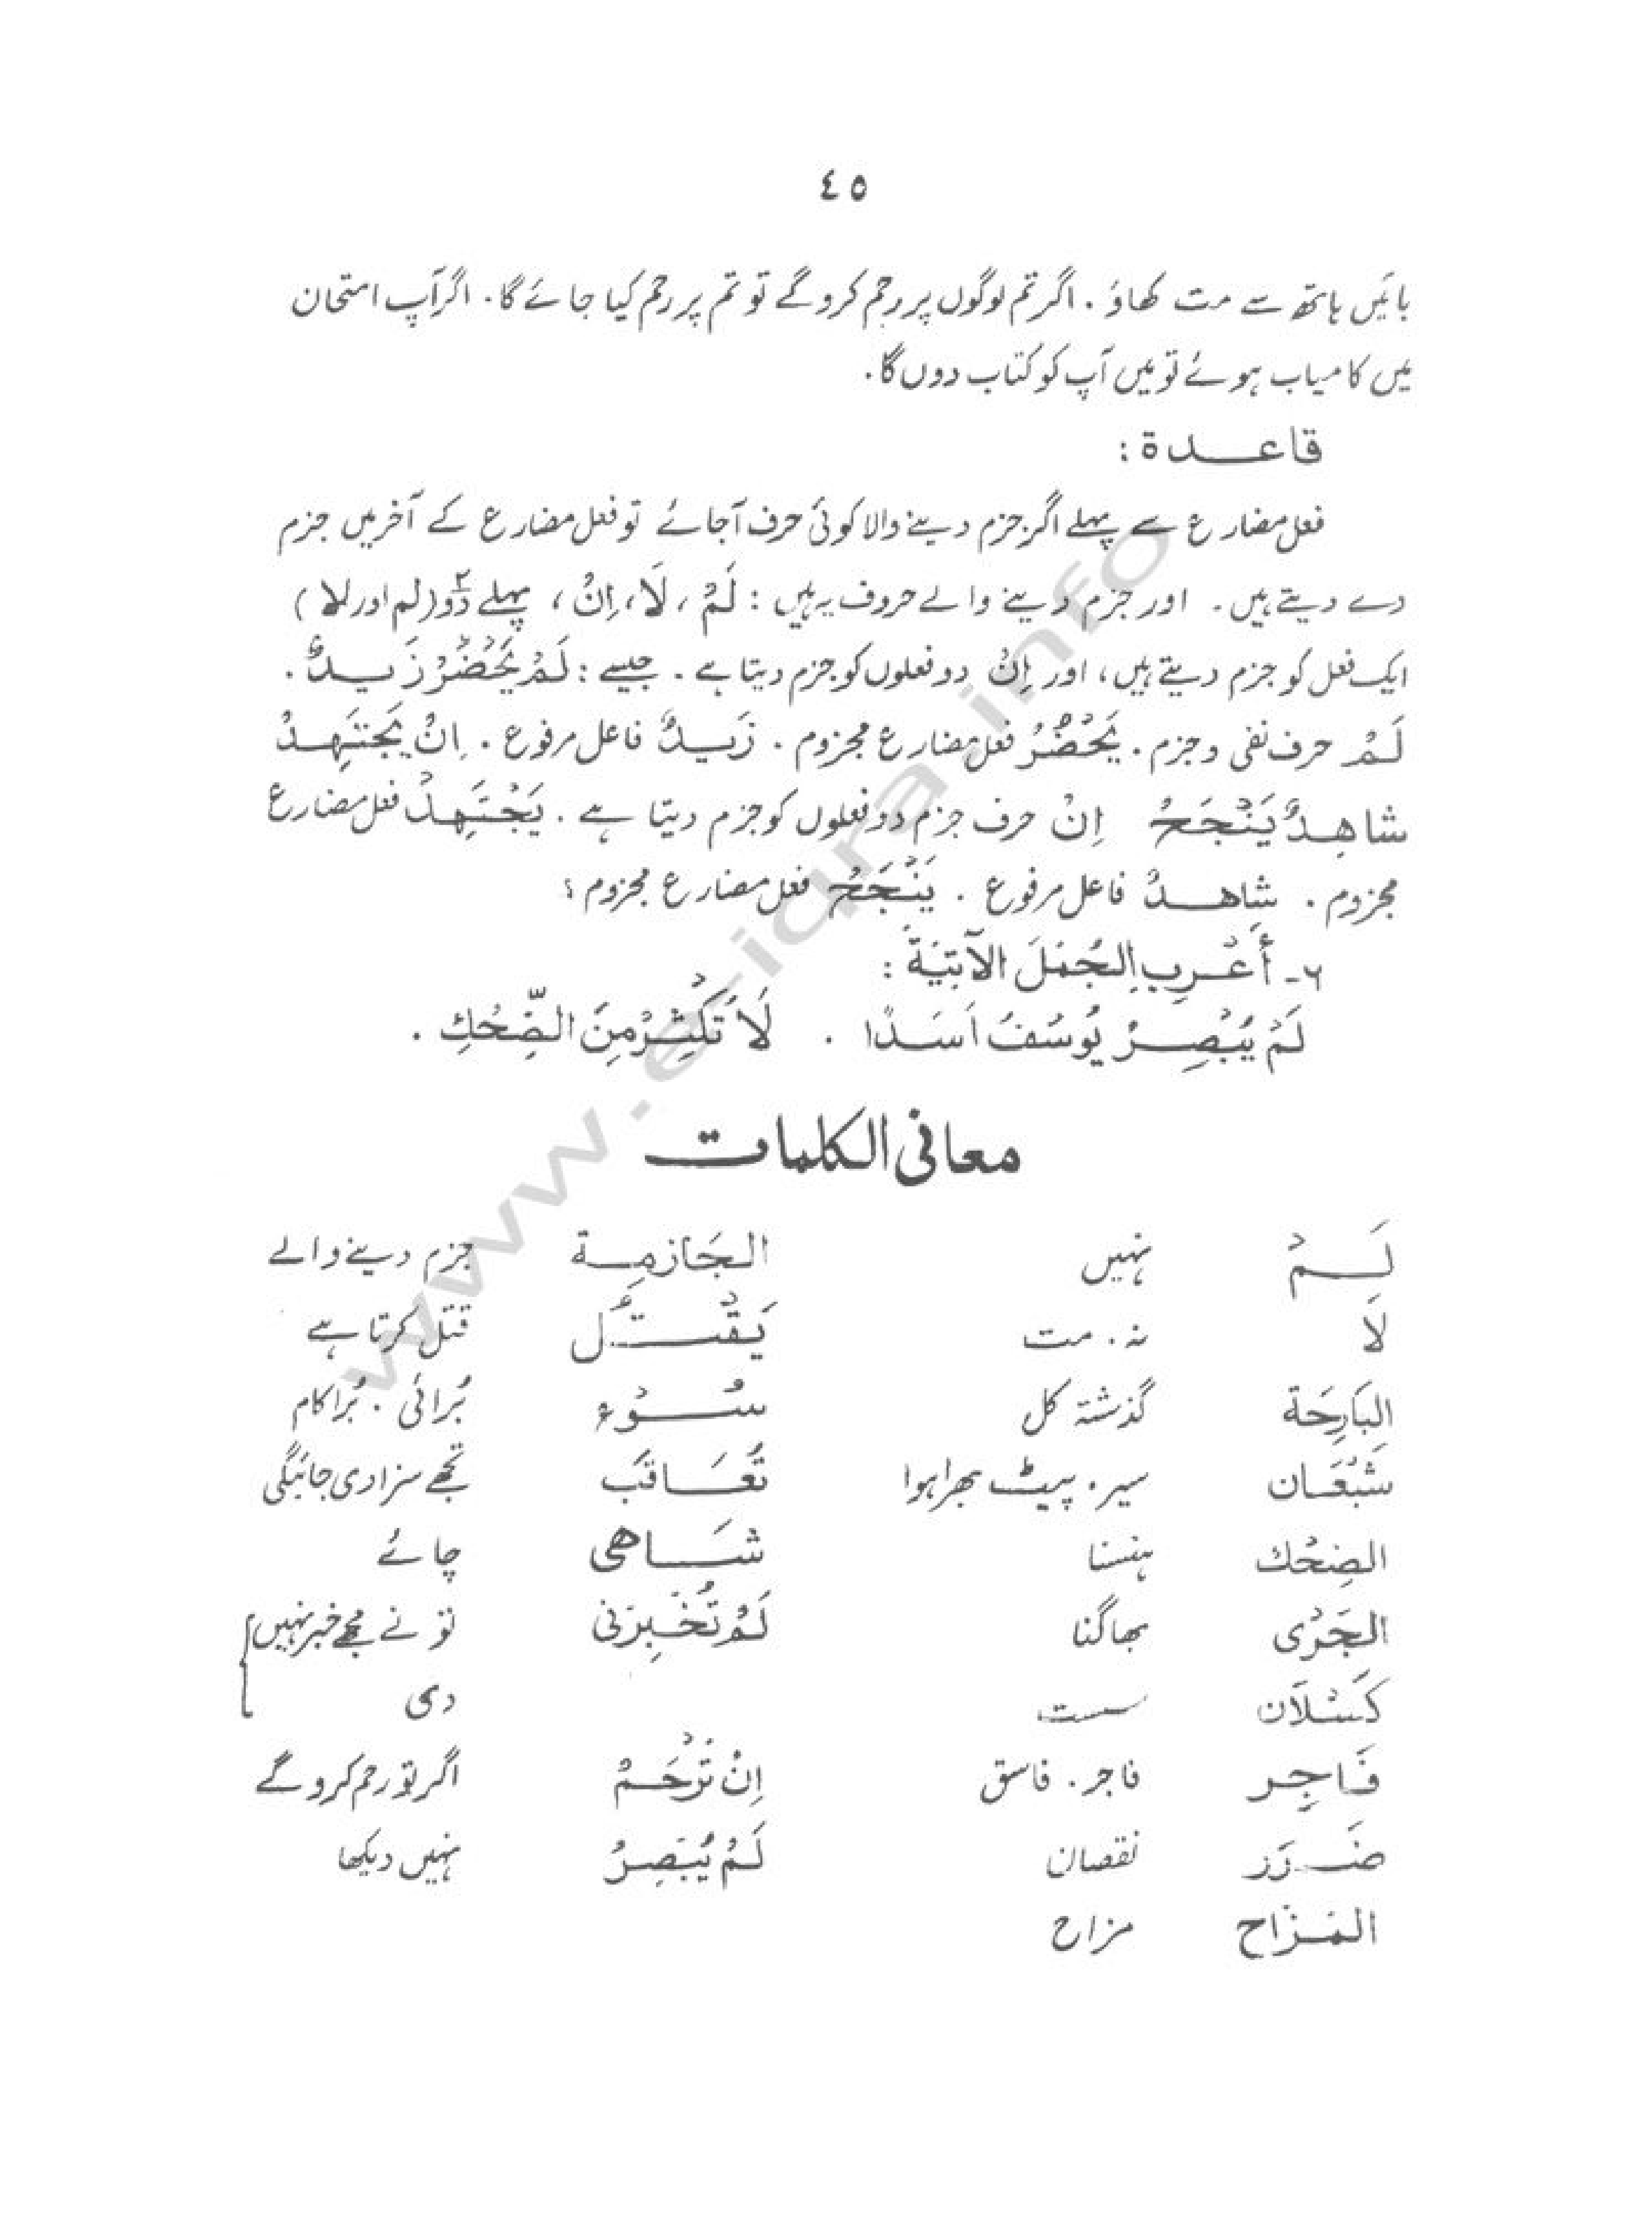 ٤٥
بائیں ہاتھ سے مت کھاؤ. اگر تم لوگوں پر رحم کروگے تو تم پر رحم کیا جائے گا. اگر آپ امتحان
میں کامیاب ہوئے تو میں آپ کو کتاب دوں گا.
قاعدة:
فعل مضارع سے پہلے اگر جزم دینے والا کوئی حرف آجائے تو فعل مضارع کے آخر میں جزم
دے دیتے ہیں. اور جزم دینے والے حروف یہ ہیں: لَمْ، لَا، اِنْ، پہلے دو (لم اور لا)
ایک فعل کو جزم دیتے ہیں، اور اِنْ دو فعلوں کو جزم دیتا ہے. جیسے: لَمْ يَحْضُرْ زَيدٌ.
لَمْ حرف نفی و جزم. يَحْضُرْ فعل مضارع مجزوم. زَيدٌ فاعل مرفوع. اِنْ يَجْتَهِدْ
شاهِدٌ يَنْجَحْ اِنْ حرف جزم دو فعلوں کو جزم دیتا ہے. يَجْتَهِدْ فعل مضارع
مجزوم. شاهِدٌ فاعل مرفوع. يَنْجَحْ فعل مضارع مجزوم؛
٦- أَعْرِبِ الجُمَلَ الآتِيَةَ:
لَمْ يُبْصِرْ يُوسُفُ اَسَدًا. لَا تُكْثِرْ مِنَ الضِّحْكِ.
معانی الکلمات
لَمْ نہیں الجَازِمة جزم دینے والے
لَا نہ. مت يَقْتُل قتل کرتا ہے
البَارِحَة گذشتہ کل سُوْء بُرائی. بُرا کام
شَبْعَان سیر. پیٹ بھرا ہوا تُعَاقَب تجھے سزا دی جائیگی
الضِحْك ہنسنا شَاهی چائے
الجَرْی بھاگنا لَمْ تُخْبِرْنی تو نے مجھے خبر نہیں
كَسْلَان سست دی
فَاجِر فاجر. فاسق اِنْ تَرْحَمْ اگر تو رحم کروگے
ضَرَر نقصان لَمْ يُبْصِرْ نہیں دیکھا
المَزَاح مزاح
www.e-iqra.info